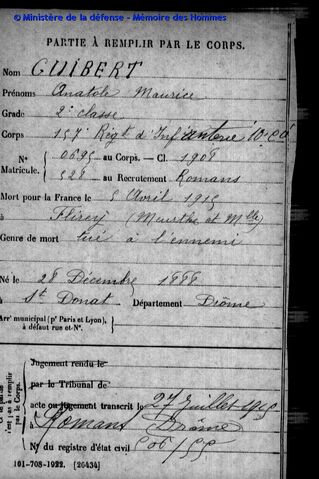 © Ministère de la défense - Mémoire des Hommes
PARTIE À REMPLIR PAR LE CORPS.
Nom GUIBERT
Prénoms Anatole Maurice
Grade 2e classe
Corps 157e Régt d'Infanterie 10e Cie
N° 0695 au Corps. — Cl. 1908
Matricule. 528 au Recrutement Romans
Mort pour la France le 5 Avril 1915
à Flirey (Meurthe et Mlle)
Genre de mort tué à l'ennemi
Né le 28 Décembre 1888
à St Donat Département Drôme
Arrt municipal (pr Paris et Lyon),
à défaut rue et N°.
Jugement rendu le
par le Tribunal de
acte ou jugement transcrit le 27 juillet 1915
à Romans Drôme
N° du registre d'état civil
101-708-1922. [26434]